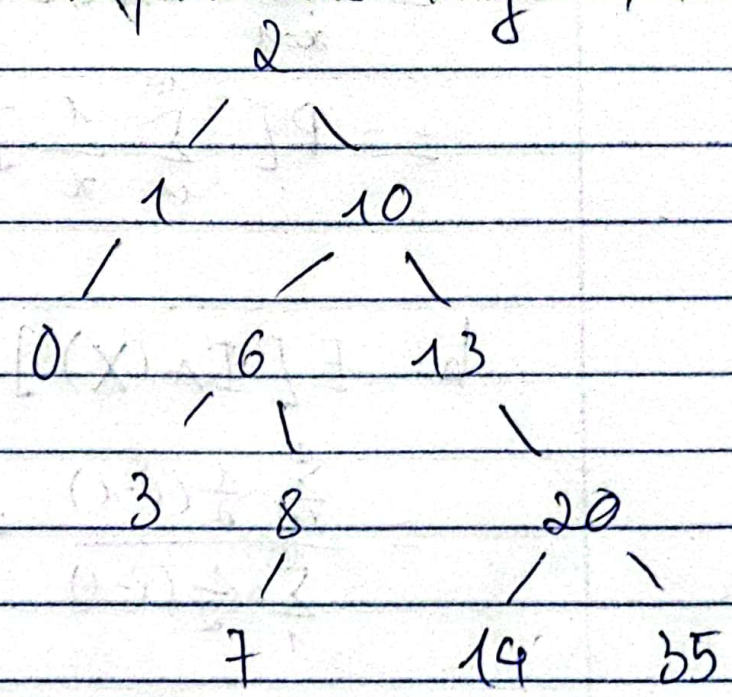 2
1 10
0 6 13
3 8 20
7 14 35